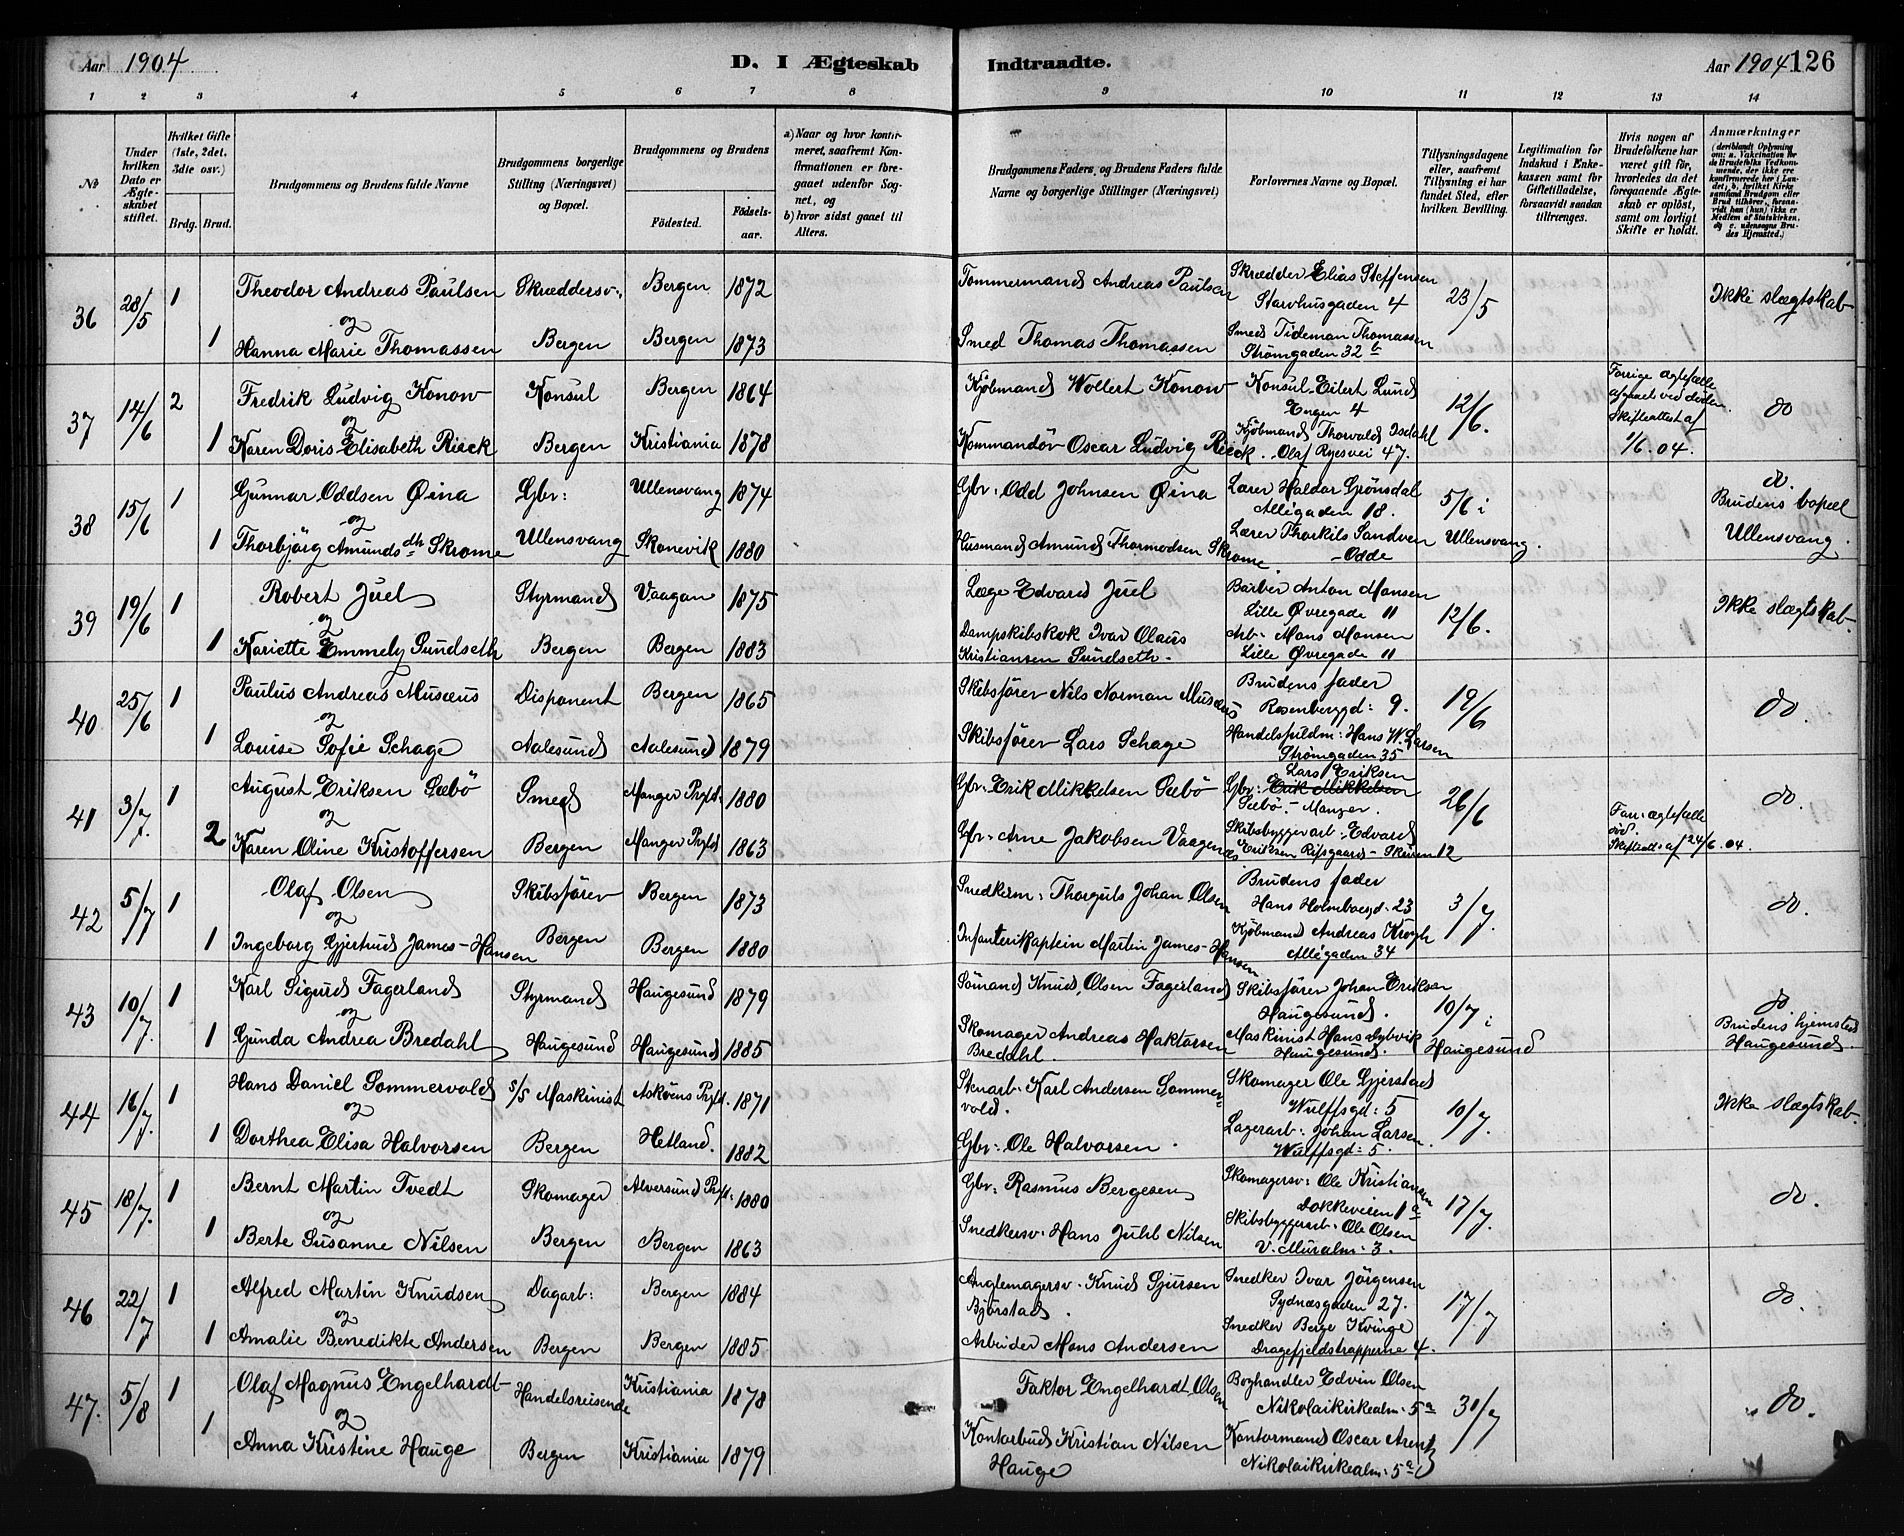 Aar 1904
D. I Ægteskab Indtraadte.
Aar 1904. 126
1 2 3 4 5 6 7 8 9 10 11 12 13 14
№
Under hvilken Dato er Ægteskabet stiftet.
Hvilket Gifte (1ste, 2det, 3die osv.)
Brdg. Brud.
Brudgommens og Brudens fulde Navne
Brudgommens borgerlige Stilling (Næringsvei) og Bopæl.
Brudgommens og Brudens
Fødested. Fødselsaar.
a) Naar og hvor konfirmeret, saafremt Konfirmationen er foregaaet udenfor Sognet, og
b) hvor sidst gaaet til Alters.
Brudgommens Faders og Brudens Faders fulde Navne og borgerlige Stillinger (Næringsvei)
Forlovernes Navne og Bopæl.
Tillysningsdagene eller, saafremt Tillysning ei har fundet Sted, efter hvilken Bevilling.
Legitimation for Indskud i Enkekassen samt for Giftetilladelse, forsaavidt saadan tiltrænges.
Hvis nogen af Brudefolkene har været gift før, hvorledes da det foregaaende Ægteskab er opløst, samt om lovligt Skifte er holdt.
Anmærkninger (deriblandt Oplysning om: a. Vakcination for de Brudefolks Vedkommende, der ikke ere konfirmerede her i Landet; b. hvilket Kirkesamfund Brudgom eller Brud tilhører, forsaavidt han (hun) ikke er Medlem af Statskirken, og c. udensogns Brudes Hjemsted.)
36 28/5 1 Theodor Andreas Paulsen Skræddersv., Bergen 1872 Tømmermand Andreas Paulsen Skrædder Elias Steffensen Starvhusgaden 4 23/5 Ikke slægtskab
og
1 Hanna Marie Thomassen Bergen Bergen 1873 Smed Thomas Thomassen Smed Tideman Thomassen Strømgaden 32 b
37 14/6 2 Fredrik Ludvig Konow Konsul Bergen 1864 Kjøbmand Wollert Konow Konsul Eilert Lund Engen 4 12/6. Forrige ægtefælle afgaaet ved døden. Skifteattest af 1/6.04. do
og
1 Karen Doris Elisabeth Rieck Bergen Kristiania 1878 Kommandør Oscar Ludvig Rieck. Kjøbmand Thorvald Isdahl Olaf Ryesvei 47.
38 15/6 1 Gunnar Oddsen Øina Gbr: Ullensvang 1874 Gbr. Odd Johnsen Øina Lærer Haldor Grønsdal Allégaden 18. 5/6 i Ullensvang. do. Brudens bopæl Ullensvang.
og
1 Thorbjörg Amundsdh Skrome Ullensvang Skonevik 1880 Husmand Amund Thormodsen Skrome. Lærer Thorkils Sandven Odde
39 19/6 1 Robert Juel Styrmand Vaagan 1875 Læge Edvard Juel Barber Anton Monsen Lille Øvregade 11 12/6. Ikke slægtskab.
og
1 Kariette Emmely Sundseth Bergen Bergen 1883 Dampskibskok Ivar Olaus Kristiansen Sundseth. Arb. Mons Monsen Lille Øvregade 11
40 25/6 1 Paulus Andreas Musæus Disponent Bergen 1865 Skibsfører Nils Norman Musæus Brudens fader Rosenberggd: 9. 19/6 do.
og
1 Louise Sofie Schage Aalesund Aalesund 1879 Skibsfører Lars Schage Handelsfuldm: Hans W. Larsen Strømgaden 35
41 3/7. 1 August Eriksen Sæbö Smed Manger Prgld. 1880 Gbr. Erik Mikkelsen Sæbö Gbr: Erik Mikkelsen Lars Eriksen Sæbö. Manger. 26/6 Forr: ægtefælle död. Skifteatt. af 24/6.04. do.
og
2 Karen Oline Kristoffersen Bergen Manger Prgld 1863 Gbr. Arne Jakobsen Vaagenæs Skibsbyggerarb. Edvard Eriksen Risgaard. Skuten 12
42 5/7 1 Olaf Olsen Skibsfører Bergen 1873 Snedkerm. Thorguls Johan Olsen Brudens fader Hans Holmboegd. 23 3/7. do.
og
1 Ingeborg Gjertrud James-Hansen Bergen Bergen 1880 Infanterikaptein Martin James-Hansen Kjøbmand Andreas Krogh Allégaden 34
43 10/7. 1 Karl Sigurd Fagerland Styrmand Haugesund 1879 Sömand Knud Olsen Fagerland Skibsfører Johan Eriksen Haugesund. 10/7 i Haugesund do. Brudens hjemsted Haugesund.
og
1 Gunda Andrea Bredahl Haugesund Haugesund 1885 Skomager Andreas Haktorsen Bredahl. Maskinist Hans Lybvik Haugesund.
44 16/7. 1 Hans Daniel Sommervold S/S Maskinist Askøens Prgld. 1871 Stenarb. Karl Andersen Sommervold. Skomager Ole Gjerstad Wulffsgd: 5 10/7. Ikke slægtskab.
og
1 Dorthea Elisa Halvorsen Bergen Hetland. 1882 Gbr. Ole Halvorsen. Lagerarb. Johan Larsen. Wulffsgd: 5.
45 18/7. 1 Bernt Martin Tvedt Skomager Alversund Prgld: 1880 Gbr. Rasmus Bergesen Skomagersv: Ole Kristiansen Dokkeveien 1 a 17/7. do.
og
1 Berte Susanne Nilsen Bergen Bergen 1863 Snedkersv. Hans Juhl Nilsen Skibsbyggerarb. Ole Olsen V. Muralm. 3.
46 22/7 1 Alfred Martin Knudsen Dagarb: Bergen 1884 Anglemagersv. Knud Sjursen Bjørstad. Snedker Ivar Jörgensen Sydnæsgaden 27. 17/7 do.
og
1 Amalie Benedikte Andersen Bergen Bergen 1885 Arbeider Mons Andersen Snedker Berge Kvinge Dragefjeldstrapperne 4.
47. 5/8 1 Olaf Magnus Engelhardt Handelsreisende Kristiania 1878 Faktor Engelhardt Olsen Boghandler Edvin Olsen Nikolaikirkealm. 5 a 31/7 do.
og
1 Anna Kristine Hauge Bergen Kristiania 1879 Kontorbud Kristian Nilsen Hauge Kontormand Oscar Arentz Nikolaikirkealm: 5 a